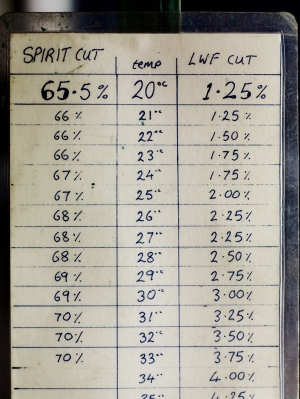 SPIRIT CUT temp LWF CUT
65.5% 20°C 1.25%
66% 21°C 1.25%
66% 22°C 1.50%
66% 23°C 1.75%
67% 24°C 1.75%
67% 25°C 2.00%
68% 26°C 2.25%
68% 27°C 2.25%
68% 28°C 2.50%
69% 29°C 2.75%
69% 30°C 3.00%
70% 31°C 3.25%
70% 32°C 3.50%
70% 33°C 3.75%
34°C 4.00%
35°C 4.25%